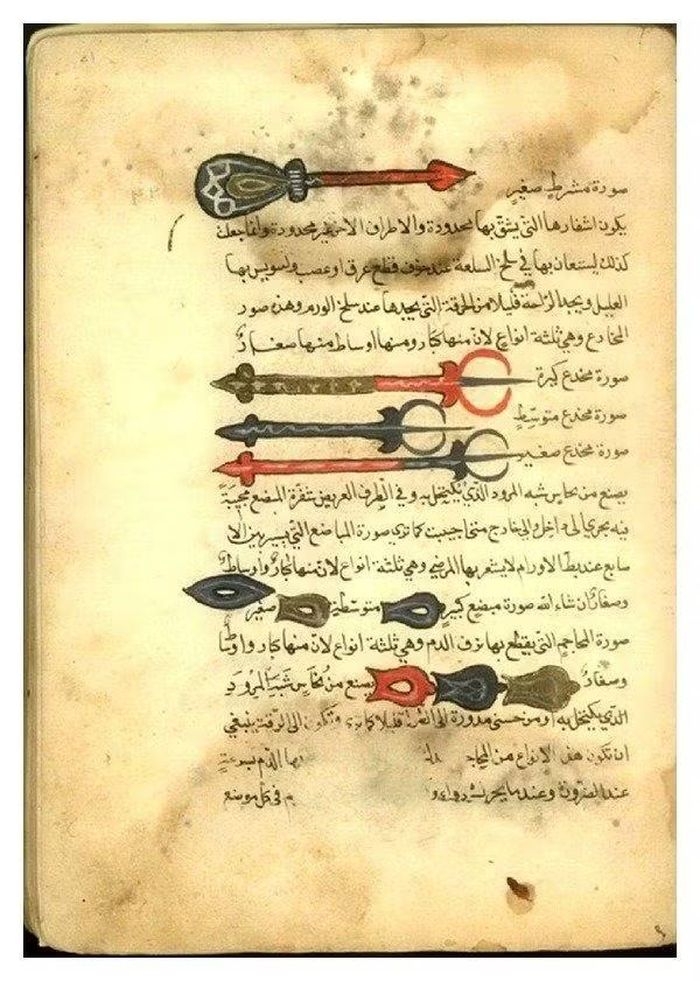 صورة مشرط صغير
يكون اشفارها التي يشق بها محدودة والاطراف الاخر غير محدودة وانما جعلت
كذلك ليستعان بها في سلخ السلعة عند خوف قطع عرق او عصب وليونس بها
العليل ويجد لراحة قليلا من الحرقة التي يجدها عند سلخ الورم وهذه صور
المخادع وهي ثلثة انواع لان منها كبار ومنها اوساط منها صغار
صورة مخدع كبيرة
صورة مخدع متوسط
صورة مخدع صغير
يصنع من نحاس شبه المرود الذي يكتحل به وفي الطرف العريض شفرة المبضع مخبية
فيه يجري الى داخل والى خارج متى احببت كما ترى صورة المباضع التي يستر بين الا
صابع عند بط الاورام لا يشعر بها المرضى وهي ثلثة انواع لان منها كبار واوساط
وصغار ان شاء الله صورة مبضع كبير متوسطة صغير
صورة المحاجم التي يقطع بها نزف الدم وهي ثلثة انواع لان منها كبار واوساط
وصغار يصنع من نحاس شبه المرود
الذي يكتحل به او من حسنى مدورة الى الطول قليلا كما ترى وتكون الى الرقة ينبغي
ان تكون هذه الانواع من المحاجم بها الدم بسرعة
عند الضرورة وعندما يحريك دواء في كل موضع